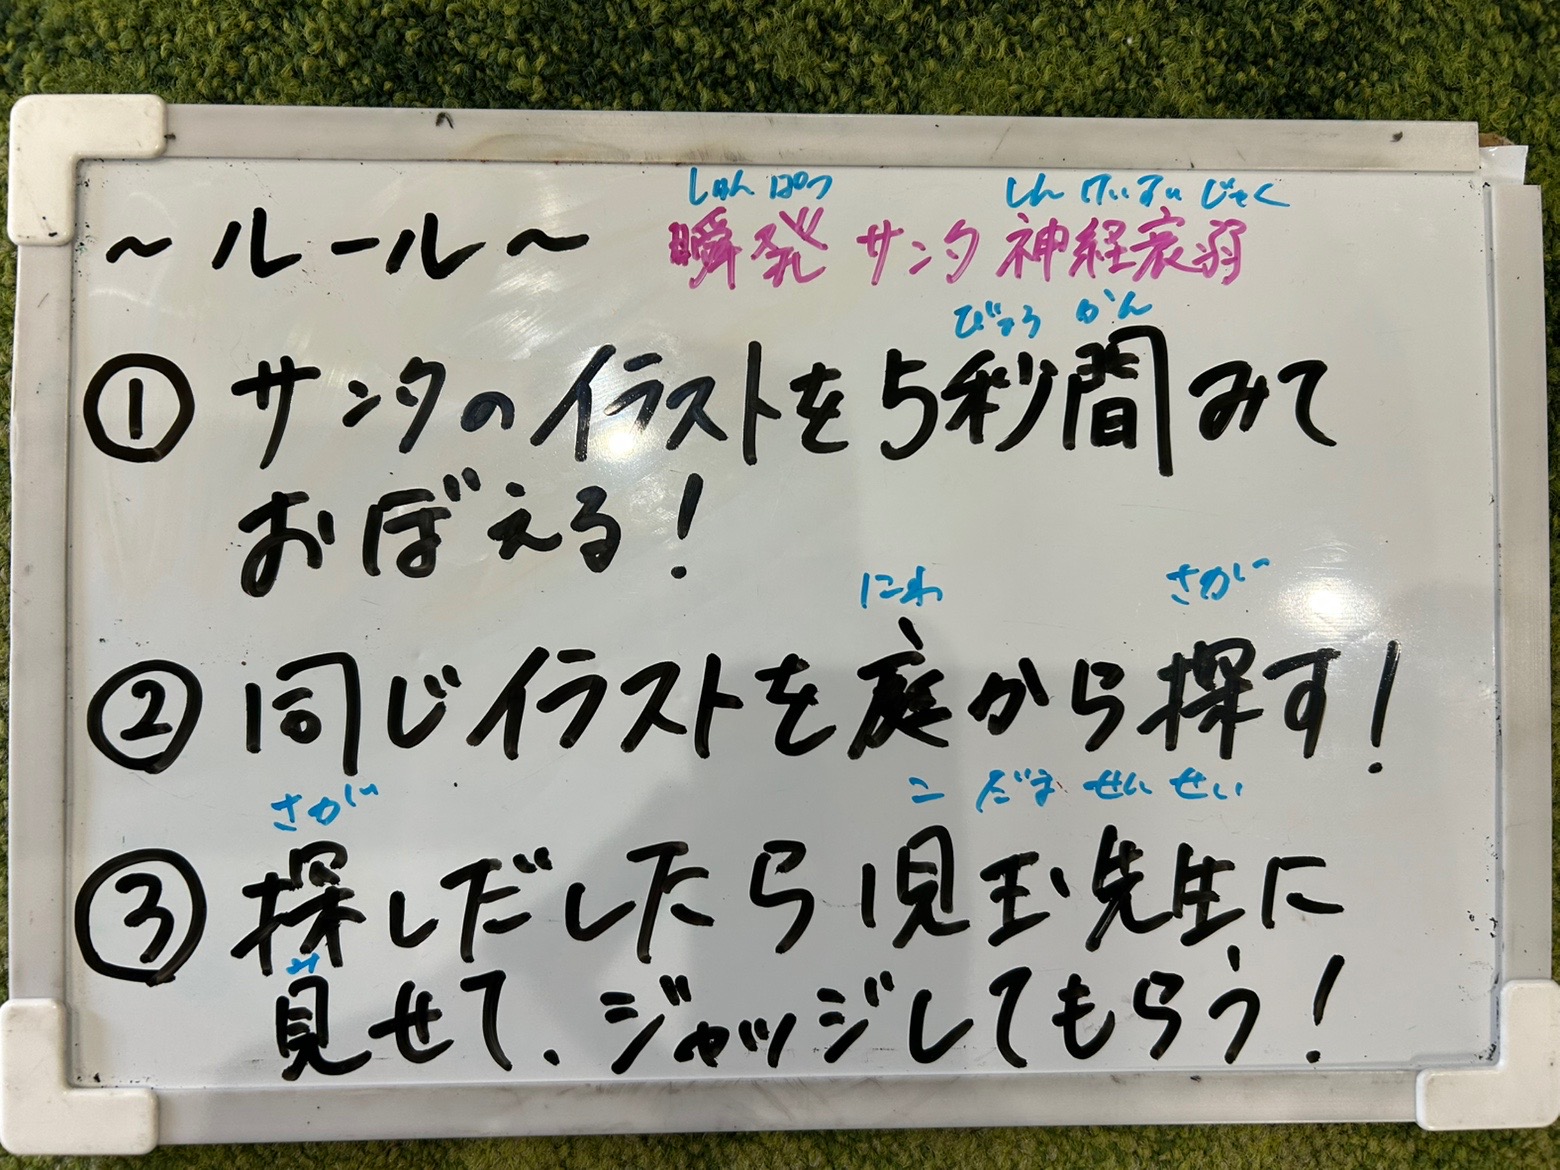 しゅんぱつ しんけいすいじゃく
～ルール～ 瞬発 サンタ 神経衰弱
びょうかん
① サンタのイラストを5秒間みて
おぼえる！
にわ さが
② 同じイラストを庭から探す！
さが こ だま せん せい
③ 探しだしたら児玉先生に
み
見せて、ジャッジしてもらう！